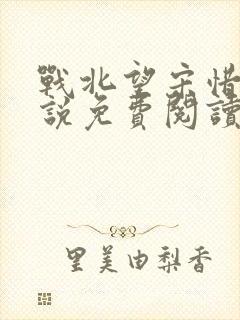 戰北望宋惜
說免費閱讀
里美由梨香